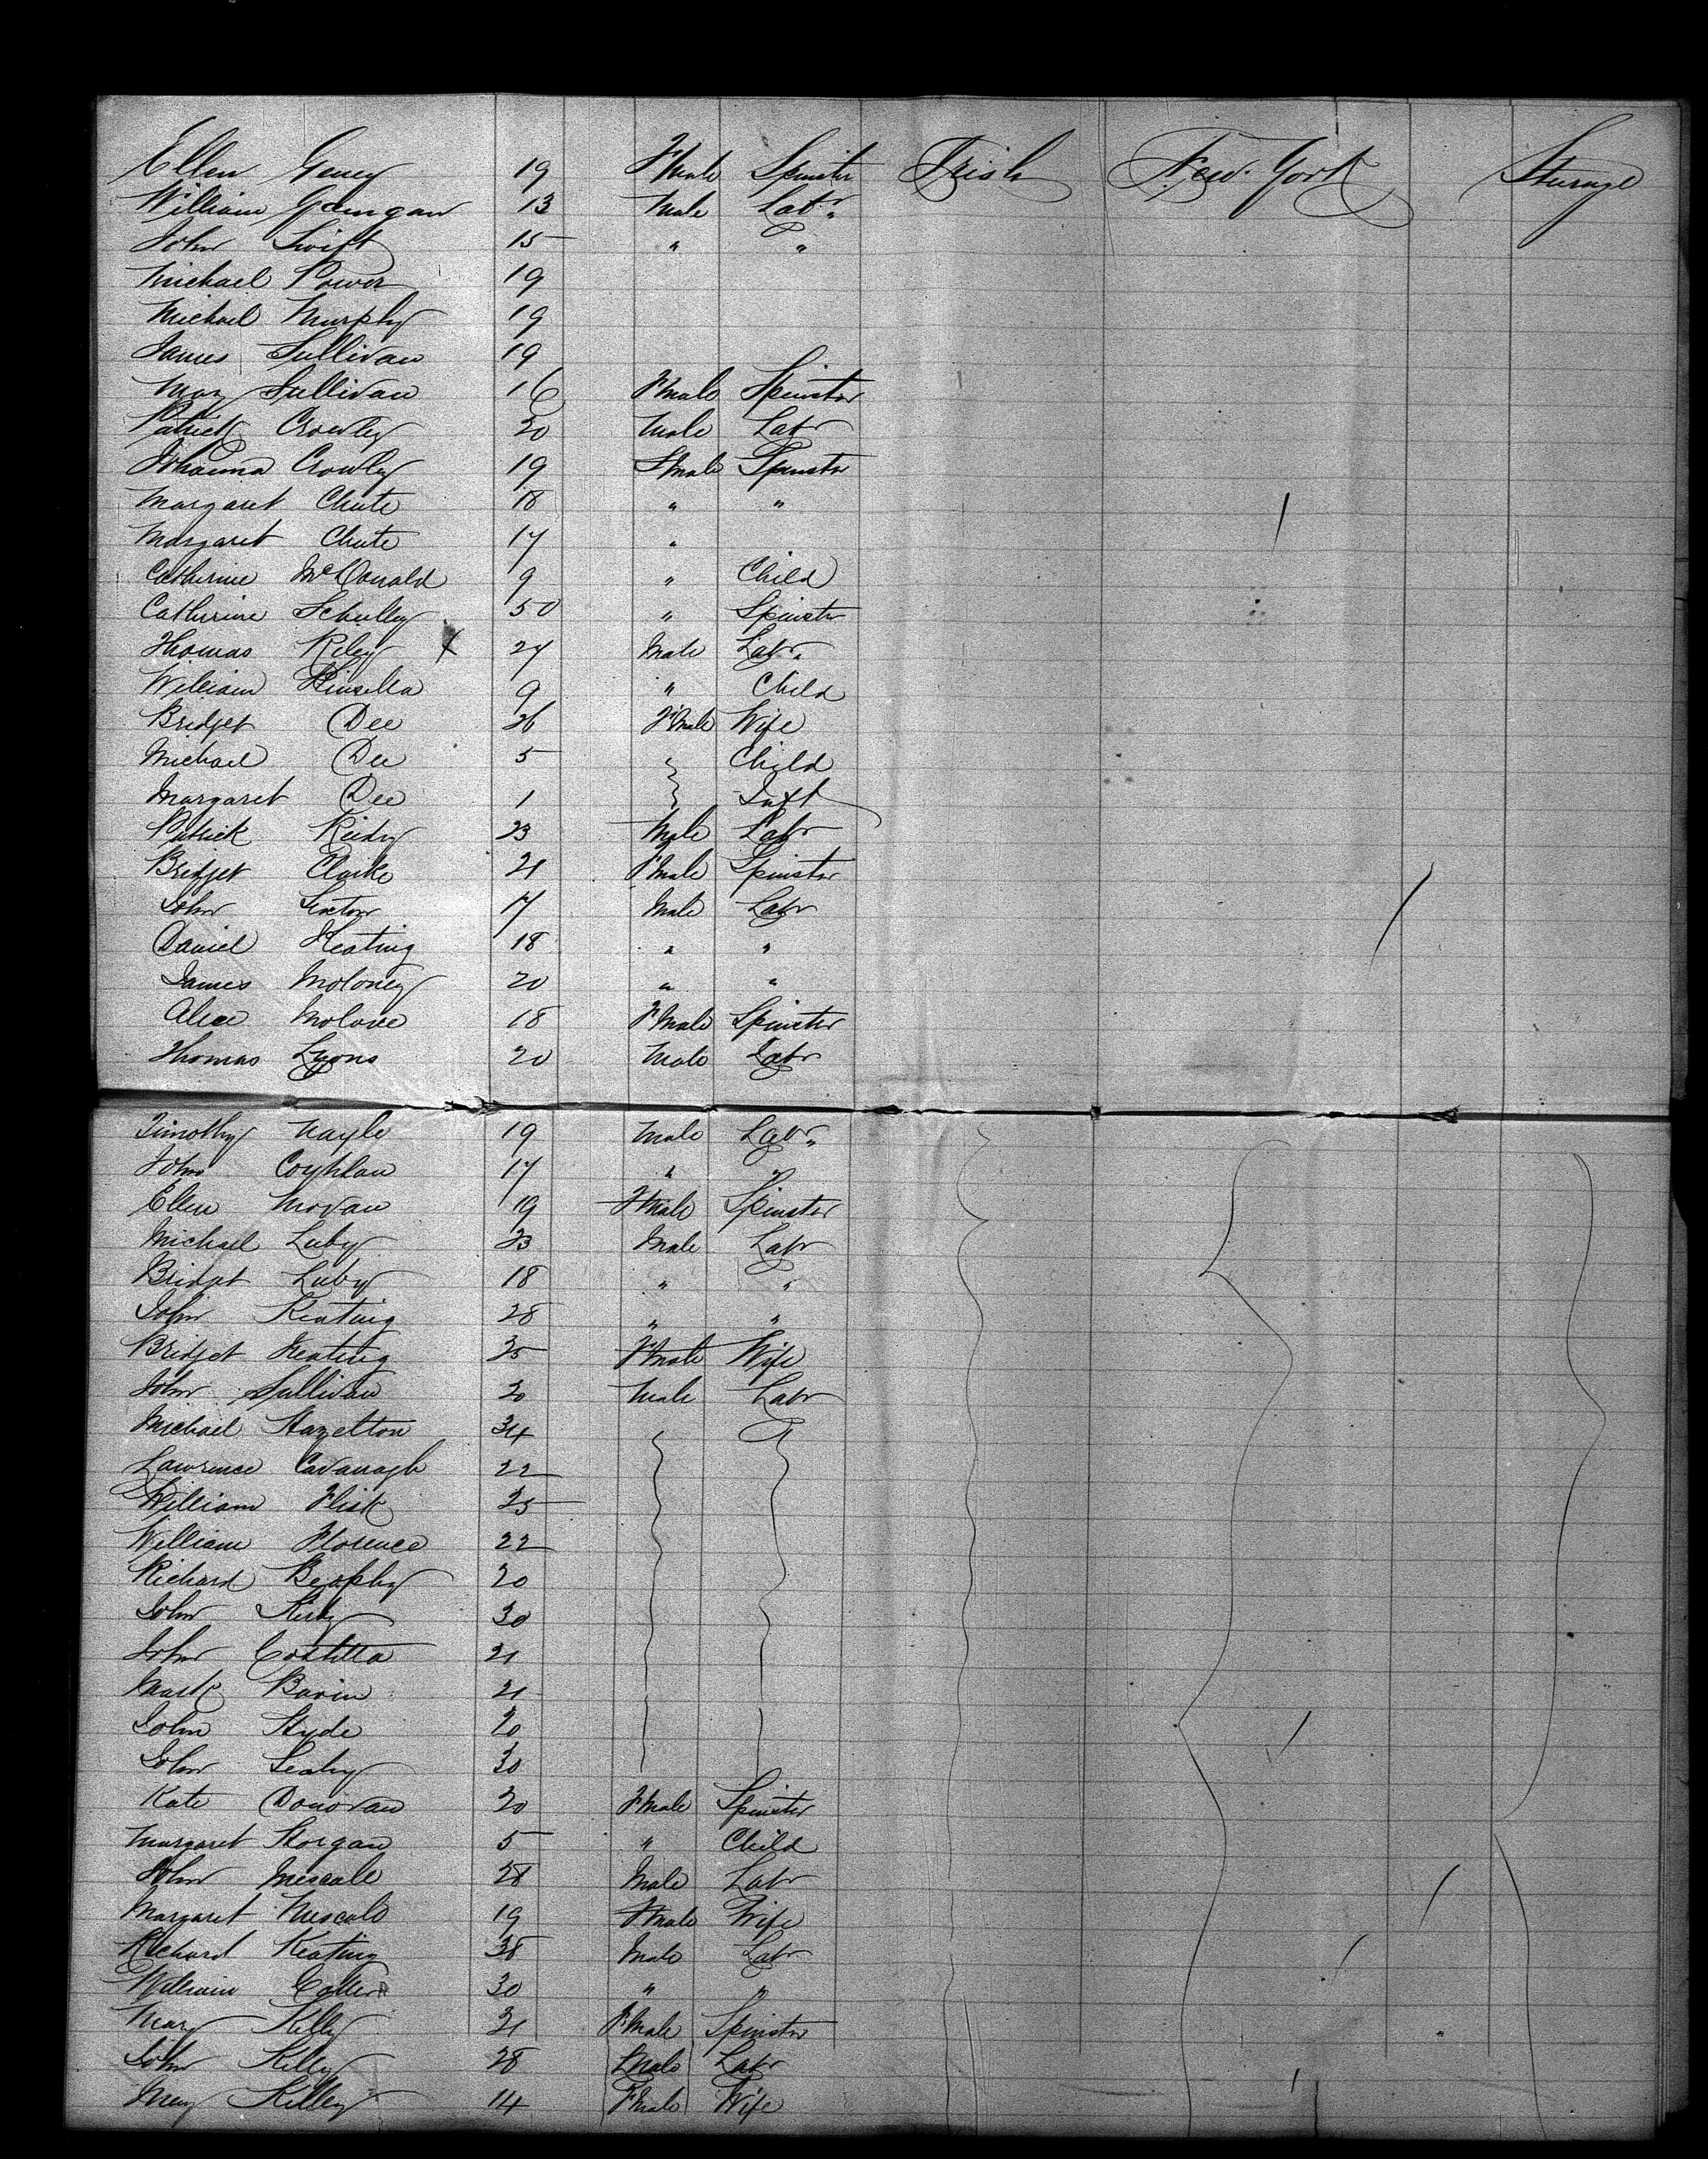 Ellen Geney 19 Fmale Spinster Irish New York Sterage
William 13 Male Labr
John Swift 15 " "
Michael Power 19
Michael Murphy 19
James Sullivan 19
Mary Sullivan 16 Fmale Spinster
Patrick Crowley 20 Male Labr
Johanna Crowley 19 Fmale Spinster
Margaret Chute 18 " "
Margaret Chute 17 "
Catherine McDonald 9 " Child
Catherine Schulley 50 " Spinster
Thomas Riley X 27 Male Labr
William Kinsella 9 " Child
Bridget Dee 26 Fmale Wife
Michael Dee 5 Child
Margaret Dee 1 Inft
Patrick Reidy 23 Male Labr
Bridget Clarke 21 Fmale Spinster
John Sexton 17 Male Labr
Daniel Keating 18 " "
James Moloney 20 " "
Alice Molone 18 Fmale Spinster
Thomas Lyons 20 Male Labr
Timothy Nagle 19 Male Labr
John Coghlan 17 " "
Ellen Moran 19 Fmale Spinster
Michael Luby 23 Male Labr
Bridget Luby 18 " "
John Keating 28 " "
Bridget Keating 25 Fmale Wife
John Sullivan 20 Male Labr
Michael Hazelton 34
Lawrence Cavanagh 22
William Flisk 25
William Florence 22
Richard Brophy 20
John Kirby 30
John Costilla 21
Mark Bavin 21
John Hyde 20
John Leahy 30
Kate Donovan 20 Fmale Spinster
Margaret Horgan 5 " Child
John Mescale 28 Male Labr
Margaret Mescale 19 Fmale Wife
Richard Keating 38 Male Labr
William Cotter 30 " "
Mary Kelly 21 Fmale Spinster
John Kelley 28 Male Labr
Mary Kelley 14 Fmale Wife